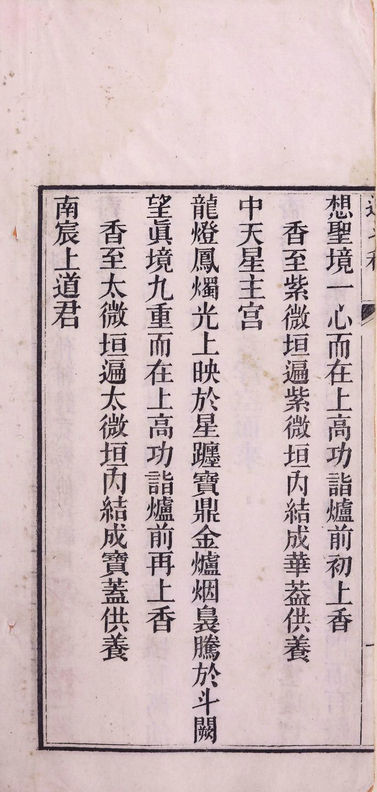 想聖境一心而在上高功詣爐前初上香
香至紫微垣遍紫微垣内結成華葢供養
中天星主宫
龍燈鳳燭光上映於星躔寶鼎金爐烟裊騰於斗闕
望眞境九重而在上高功詣爐前再上香
香至太微垣遍太微垣内結成寶蓋供養
南宸上道君